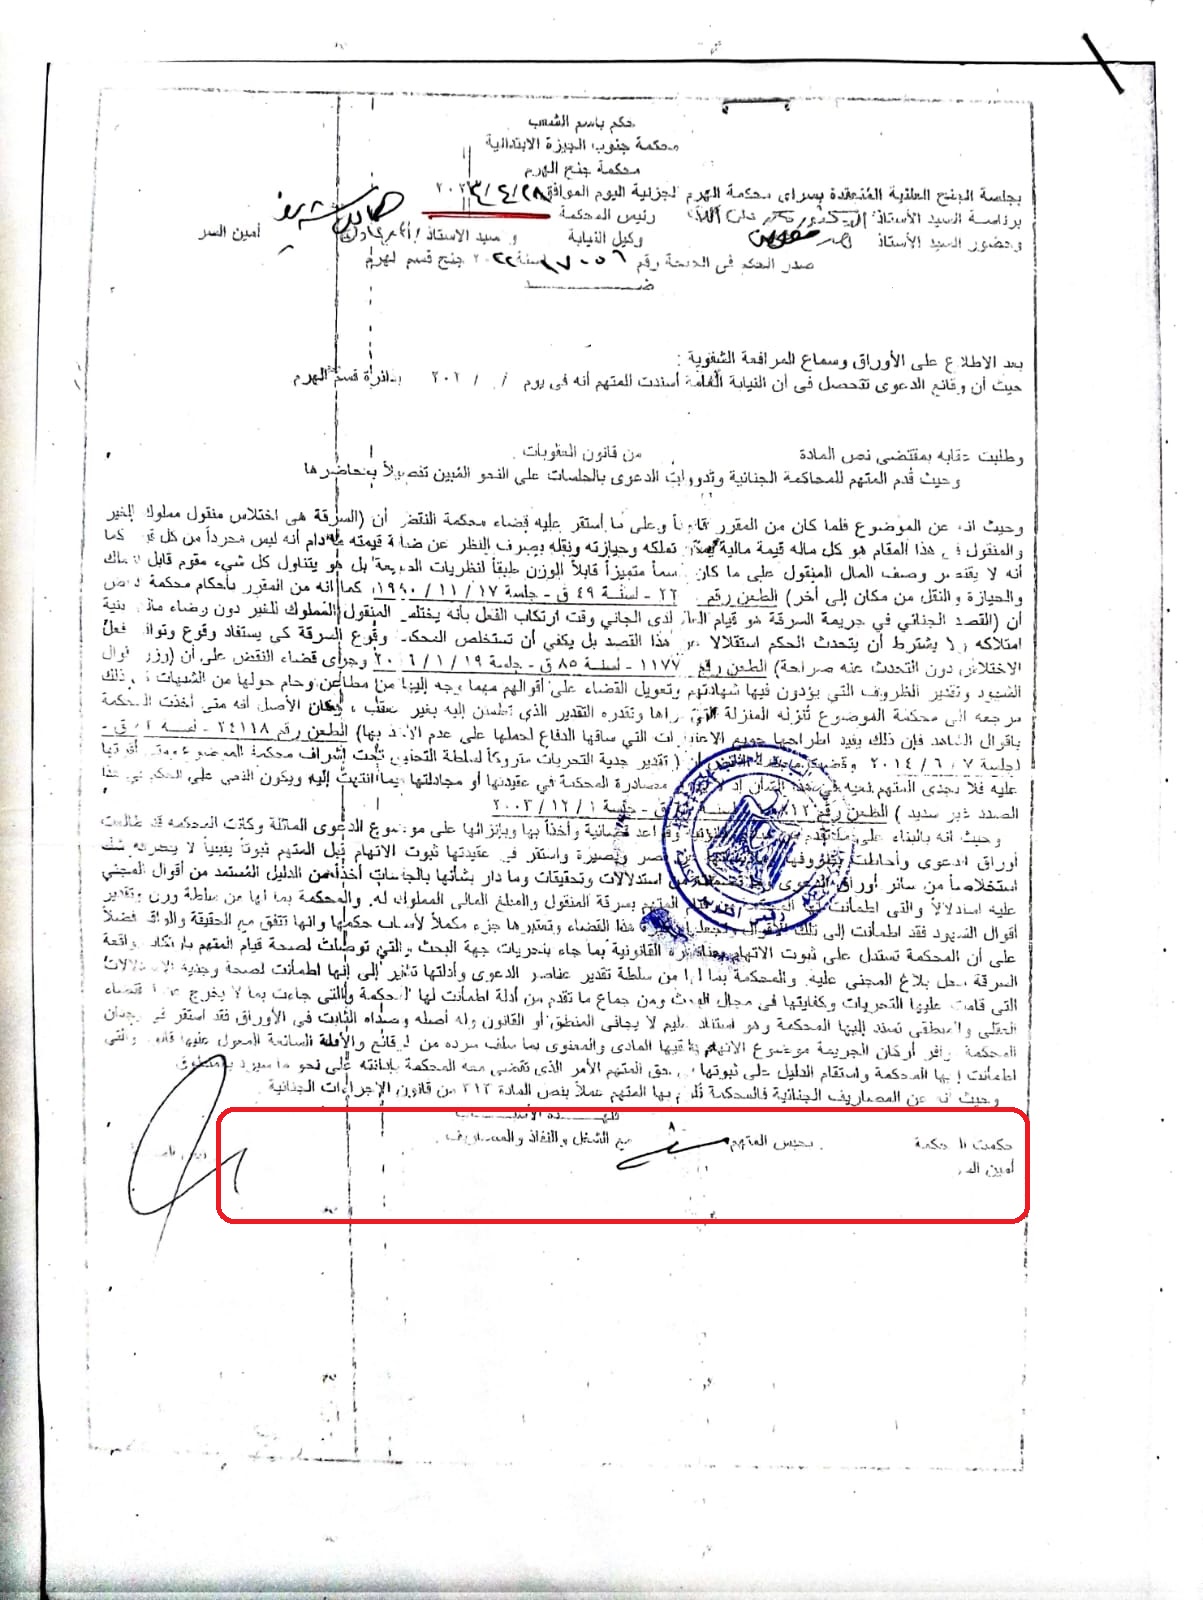 حكم باسم الشعب
محكمة جنوب الجيزة الابتدائية
محكمة جنح الهرم
بجلسة الجنح العلنية المنعقدة بسراى محكمة الهرم الجزئية اليوم الموافق ٢٠٢٣/٤/٢٨
برئاسة السيد الأستاذ / رئيس المحكمة
وحضور السيد الأستاذ وكيل النيابة و سيد الاستاذ / أمين السر
صدر الحكم فى الجنحة رقم لسنة ٢٠٢٢ جنح قسم الهرم
ضد
بعد الاطلاع على الأوراق وسماع المرافعة الشفوية :
حيث أن وقائع الدعوى تتحصل فى أن النيابة العامة أسندت للمتهم أنه فى يوم / / ٢٠١ بدائرة قسم الهرم
وطلبت عقابه بمقتضى نص المادة من قانون العقوبات
وحيث قُدم المتهم للمحاكمة الجنائية وتدوولت الدعوى بالجلسات على النحو المُبين تفصيلاً بمحاضرها
وحيث انه عن الموضوع فلما كان من المقرر قانوناً وعلى ما أستقر عليه قضاء محكمة النقض أن (السرقة هى اختلاس منقول مملوك للغير
والمنقول فى هذا المقام هو كل ماله قيمة مالية يمكن تملكه وحيازته ونقله بصرف النظر عن ضآلة قيمته ما دام أنه ليس مجرداً من كل قيمة كما
أنه لا يقتصر وصف المال المنقول على ما كان جسماً متميزاً قابلاً للوزن طبقاً لنظريات الطبيعة بل هو يتناول كل شيء مقوم قابل للتملك
والحيازة والنقل من مكان إلى أخر) الطعن رقم ٢٢ - لسنة ٤٩ ق - جلسة ١٧ / ١١ / ١٩٩٠، كما أنه من المقرر بأحكام محكمة النقض
أن (القصد الجنائي في جريمة السرقة هو قيام العلم لدى الجاني وقت ارتكاب الفعل بأنه يختلس المنقول المملوك للغير دون رضاء مالكه بنية
امتلاكه ولا يشترط أن يتحدث الحكم استقلالا عن هذا القصد بل يكفي أن تستخلص المحكمة وقوع السرقة كى يستفاد وقوع وتوافر فعل
الاختلاس دون التحدث عنه صراحة) الطعن رقم ١١٧٧ - لسنة ٨٥ ق - جلسة ١٩ / ١ / ٢٠١٦ وجرى قضاء النقض على أن (وزن أقوال
الشهود وتقدير الظروف التي يؤدون فيها شهادتهم وتعويل القضاء على أقوالهم مهما وجه إليها من مطاعن وحام حولها من الشبهات كل ذلك
مرجعه الى محكمة الموضوع تُنزله المنزلة التى تراها وتقدره التقدير الذي تطمئن إليه بغير معقب ، وكان الأصل أنه متى أخذت المحكمة
باقوال الشاهد فإن ذلك يفيد اطراحها جميع الاعتبارات التي ساقها الدفاع لحملها على عدم الأخذ بها) الطعن رقم ٢٤١١٨ - لسنة ق -
جلسة ٧ / ٦ / ٢٠١٤ وقضت محكمة النقض أن ( تقدير جدية التحريات متروكاً لسلطة التحقيق تحت إشراف محكمة الموضوع ومتى أقرتها
عليه فلا يجدى المتهم نعيه فى هذا الشأن إذ لا يجوز مصادرة المحكمة في عقيدتها أو مجادلتها فيما انتهت إليه ويكون النعي على الحكم في هذا
الصدد غير سديد ) الطعن رقم لسنة ق - جلسة ١ / ١٢ / ٢٠٠٣
وحيث انه بالبناء على ما تقدم من وقواعد قضائية وأخذاً بها وبإنزالها على موضوع الدعوى الماثلة وكانت المحكمة قد طالعت
أوراق الدعوى وأحاطت بظروفها عن بصر وبصيرة واستقر في عقيدتها ثبوت الاتهام قبل المتهم ثبوتاً يقينياً لا يعتريه شك
استخلاصاً من سائر أوراق الدعوى وما تضمنته من استدلالات وتحقيقات وما دار بشأنها بالجلسات أخذاً من الدليل المُستمد من أقوال المجني
عليه استدلالاً والتى اطمأنت لها المحكمة المتهم بسرقة المنقول والمبلغ المالى المملوك له. والمحكمة بما لها من سلطة وزن وتقدير
أقوال الشهود فقد اطمأنت إلى تلك الأقوال هذا القضاء وتعتبرها جزء مكملاً لأسباب حكمها وانها تتفق مع الحقيقة والواقع فضلاً
على أن المحكمة تستدل على ثبوت الاتهام القانونية بما جاء بتحريات جهة البحث والتي توصلت لصحة قيام المتهم بارتكاب واقعة
السرقة محل بلاغ المجنى عليه. والمحكمة بما لها من سلطة تقدير عناصر الدعوى وأدلتها تشير إلى إنها اطمأنت لصحة وجدية الاستدلالات
التى قامت عليها التحريات وكفايتها في مجال البحث ومن جماع ما تقدم من أدلة اطمأنت لها المحكمة والتى جاءت بما لا يخرج عن اقتضاء
العقلى والمنطقى تستند إليها المحكمة وهو استناد سليم لا يجافى المنطق أو القانون وله أصله وصداه الثابت في الأوراق فقد استقر في وجدان
المحكمة توافر أركان الجريمة موضوع الاتهام بشقيها المادى والمعنوى بما سلف سرده من الوقائع والأدلة السائغة المعول عليها قانوناً والتى
اطمأنت إليها المحكمة واستقام الدليل على ثبوتها فى حق المتهم الأمر الذي تقضى معه المحكمة بإدانته على نحو ما سيرد بالمنطوق
وحيث انه عن المصاريف الجنائية فالمحكمة تُلزم بها المتهم عملاً بنص المادة ٣١٣ من قانون الإجراءات الجنائية
فلهـــذه الأسبـــاب
حكمت المحكمة بحبس المتهم مع الشغل والنفاذ والمصاريف.
أمين السر